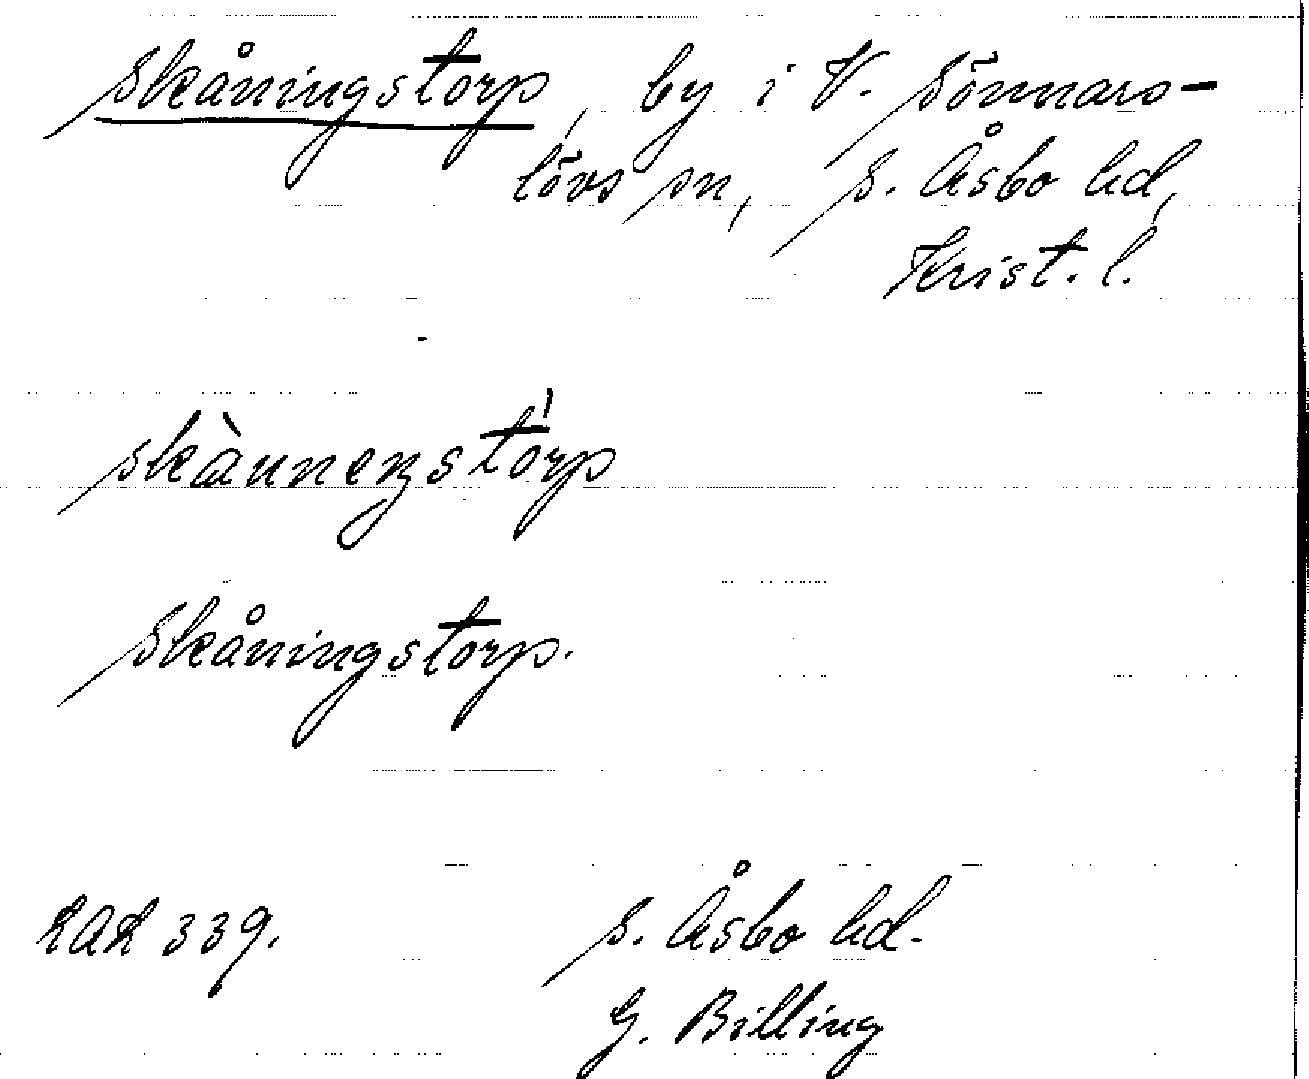 Skåningstorp, by i V. Sönnars-
lövs sn, S. Åsbo hd,
Krist. l.
skànneŋstórp
Skåningstorp.
LAL 339. S. Åsbo hd.
G. Billing